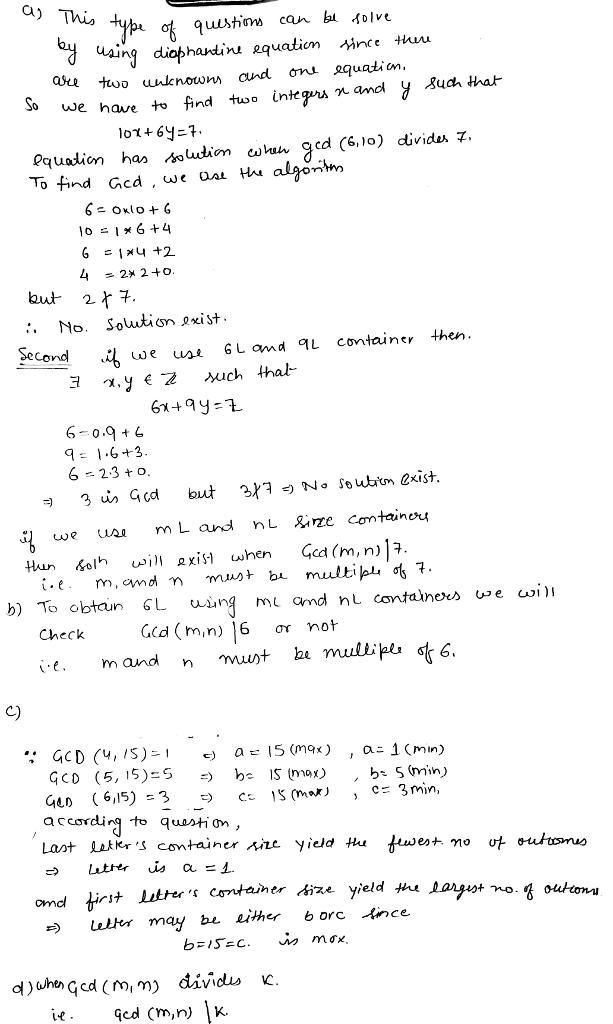 a) This type of questions can be solve
by using diophantine equation since there
are two unknowns and one equation.
So we have to find two integers x and y such that
10x+6y=7.
equation has solution when gcd (6,10) divides 7.
To find Gcd, we use the algorithm
6 = 0x10 + 6
10 = 1*6+4
6 = 1*4 +2
4 = 2*2+0.
but 2∤7.
∴ No. Solution exist.
Second if we use 6L and 9L container then.
∃ x,y ∈ Z such that
6x+9y=7
6=0.9+6
9=1.6+3.
6=2.3+0.
⇒ 3 is Gcd but 3∤7 ⇒ No soution exist.
if we use mL and nL size containers
then soln will exist when Gcd(m,n)|7.
i.e. m, and n must be multiple of 7.
b) To obtain 6L using mL and nL containers we will
check Gcd(m,n)|6 or not
i.e. m and n must be multiple of 6.
c)
∵ GCD (4,15)=1 ⇒ a=15(max), a=1(min)
GCD (5,15)=5 ⇒ b=15(max), b=5(min)
GCD (6,15)=3 ⇒ c=15(max), c=3min,
according to question,
Last letter's container size yield the fewest no of outcomes
⇒ Letter is a=1
and first letter's container size yield the largest no. of outcoms
⇒ Letter may be either b or c since
b=15=c. is max.
d) when Gcd(m,n) divides K.
ie. gcd (m,n) | K.